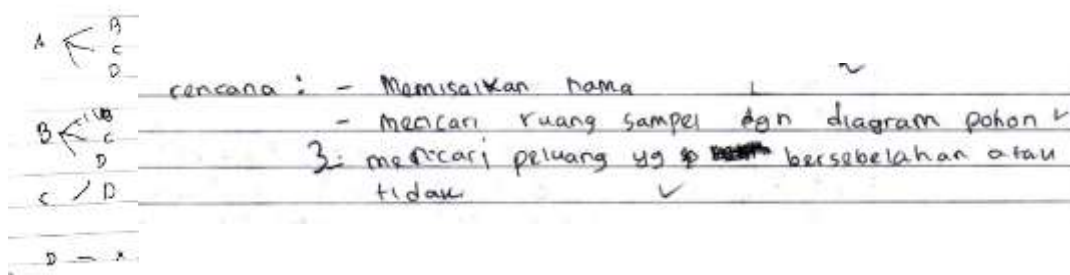 A B
C
D
B C
D
C / D
D -
rencana : - Memisalkan nama
- mencari ruang sampel dgn diagram pohon
3. mencari peluang yg bersebelahan atau
tidak